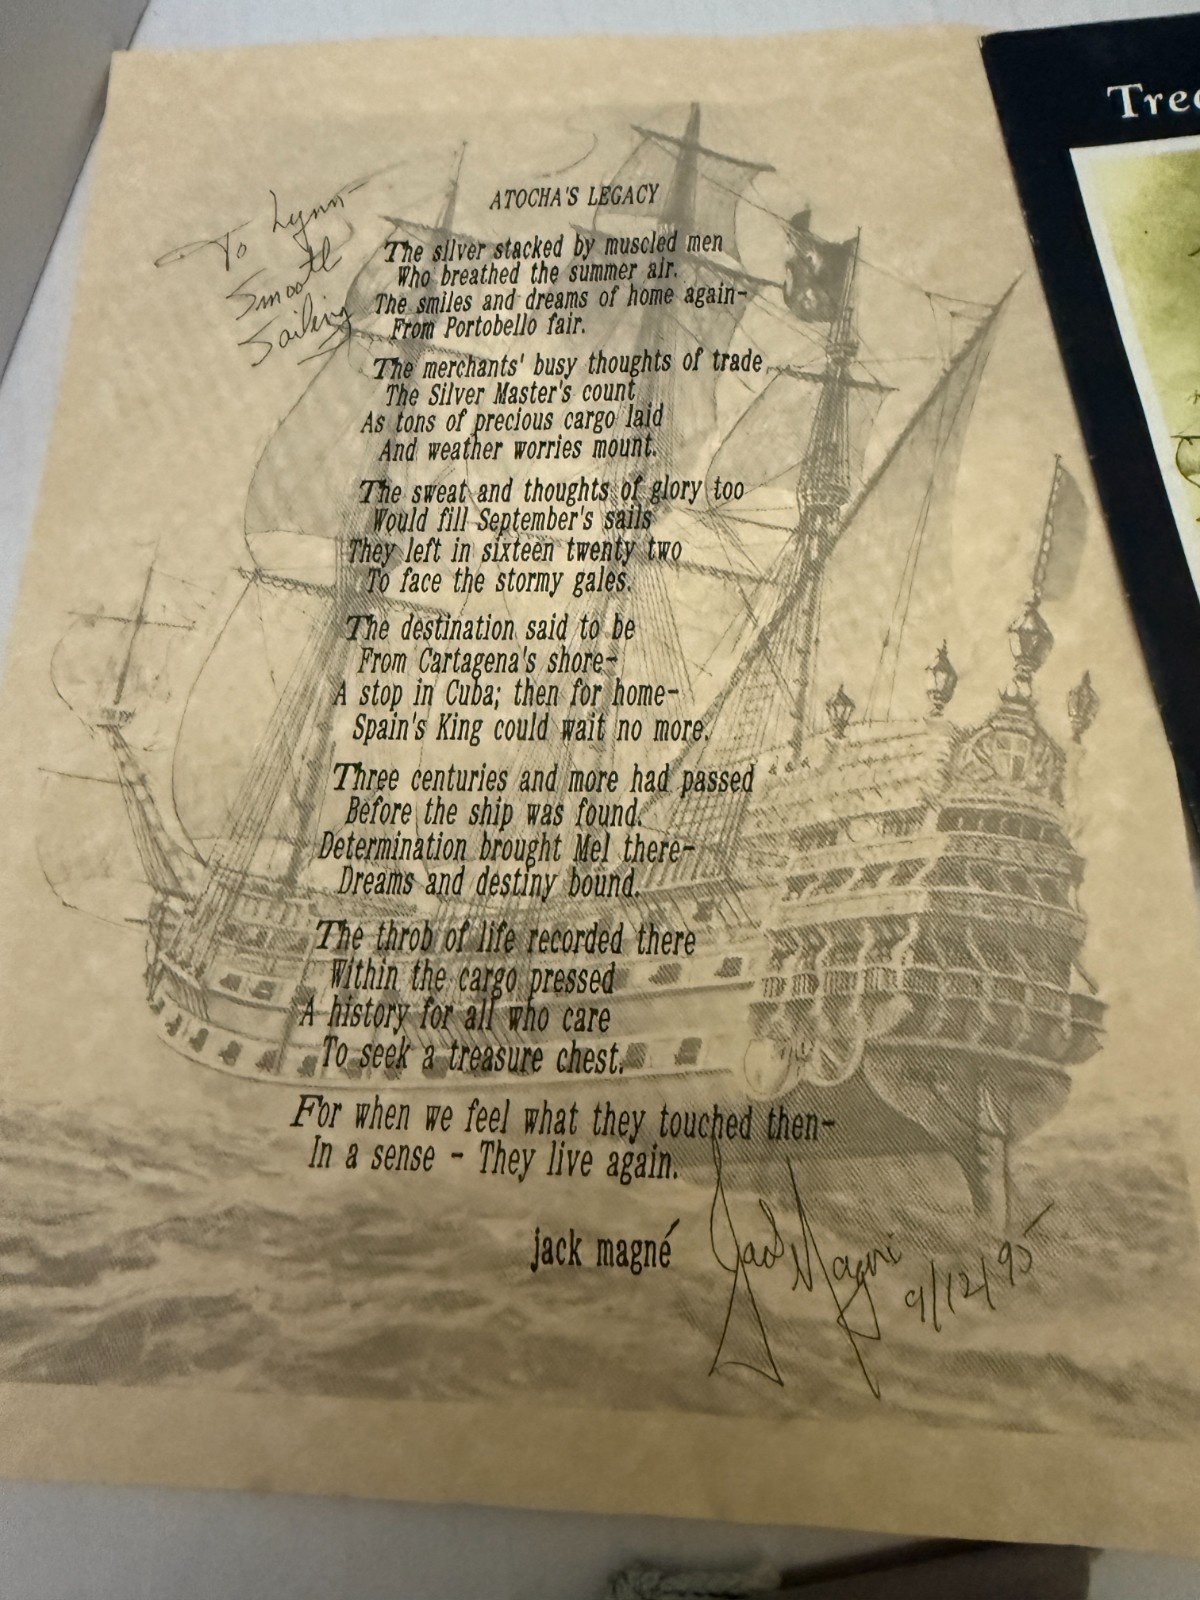 To Lynn-
Smooth
Sailing
ATOCHA'S LEGACY
The silver stacked by muscled men
Who breathed the summer air.
The smiles and dreams of home again-
From Portobello fair.
The merchants' busy thoughts of trade,
The Silver Master's count
As tons of precious cargo laid
And weather worries mount.
The sweat and thoughts of glory too
Would fill September's sails
They left in sixteen twenty two
To face the stormy gales.
The destination said to be
From Cartagena's shore-
A stop in Cuba; then for home-
Spain's King could wait no more.
Three centuries and more had passed
Before the ship was found.
Determination brought Mel there-
Dreams and destiny bound.
The throb of life recorded there
Within the cargo pressed
A history for all who care
To seek a treasure chest.
For when we feel what they touched then-
In a sense - They live again.
jack magné
Jack Magné
9/12/95